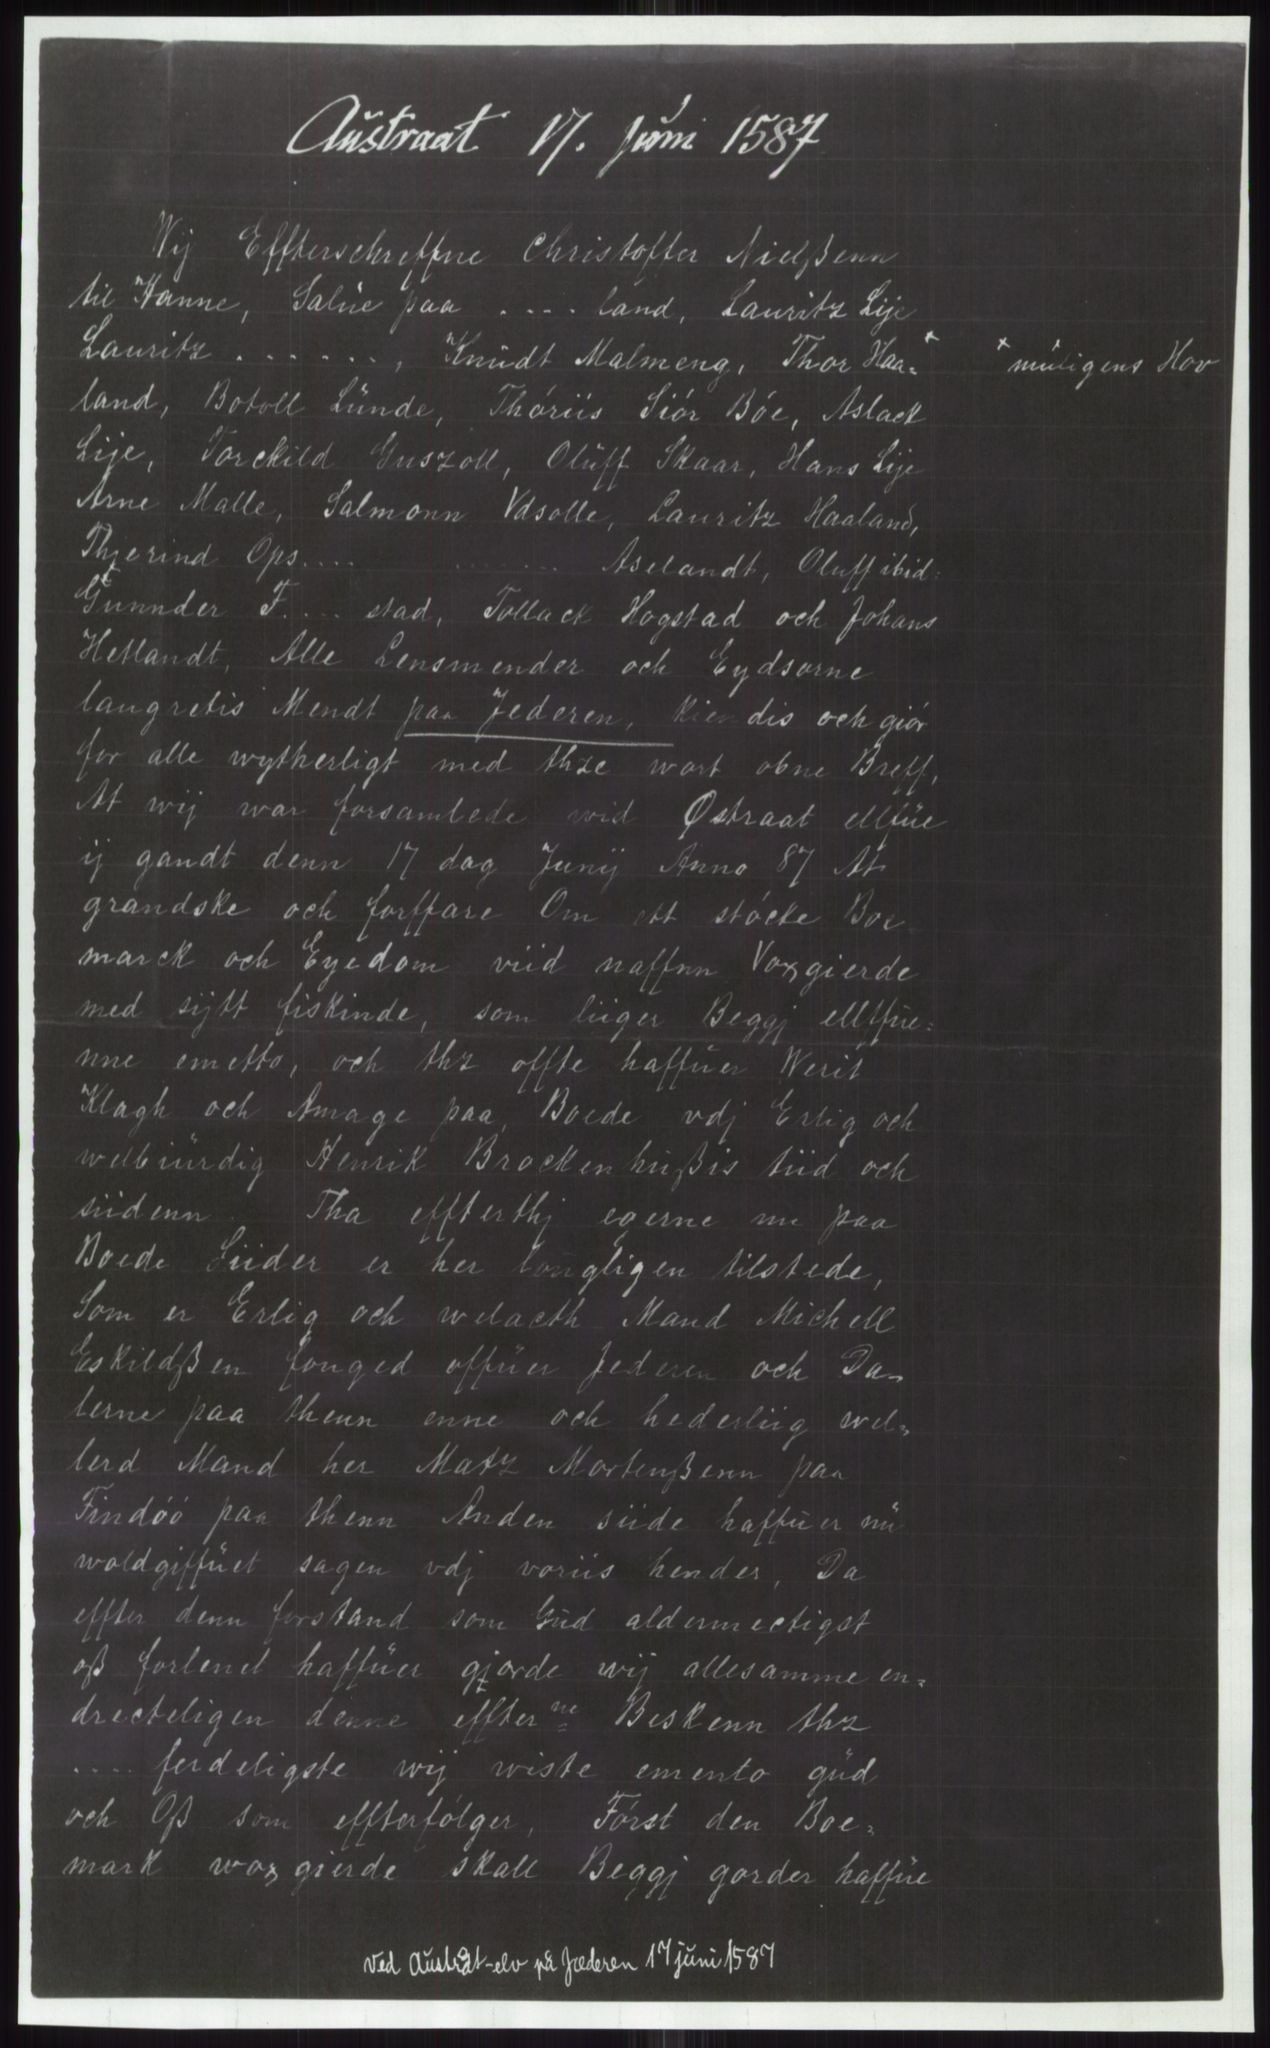 Austraat 17. juni 1587
Wij Effterschreffne Christoffer Nielßenn
til Hanne, Salue paa .... land, Lauritz Lije
Lauritz ......., Knudt Malmeng, Thor Haa= × × muligens Hov
land, Botoll Lunde, Thóriis Siór Bóe, Aslack
Lije, Torckild Guszoll, Oluff Skaar, Hans Lije
Arne Malle, Salmonn Vdsolle, Lauritz Haaland,
Thjerind Ops.... ....... Aselandt, Oluff ibid:
Gunnder F.... stad, Tollack Hogstad och Johans
Hetlandt, Alle Lensmender och Eydsorne
laugretis Mendt paa Jederen, kiendis och giór
for alle wytherligt med thze wort obne Breff,
At wij war forsamlede wid Østraat ellfue
ij gandt denn 17 dag Junij Anno 87 At
grandske och forffare Om ett stócke Boe-
marck och Eyedom viid naffnn Voxgierde
med sijtt fiskinde, som liiger Beggj ellfue=
nne emetto, och thz offte haffuer Werit
Klagh och Amage paa, Boede vdj Erlig och
welbiurdig Henrik Brockenhußis tiid och
siidenn. Tha effterthj egerne nu paa
Boede Siider er her lougligen tilstede,
Som er Erlig och welacth Mand Michell
Eskildßen fouged offuer Jederen och Da=
lerne paa thenn enne och hederliig wel=
lerd Mand her Matz Mortenßenn paa
Findóó paa thenn Anden siide haffuer nu
woldgiffuet sagen vdj voriis hender, Da
effter denn forstand som Gud aldermectigst
oß forlenet haffuer gjorde wij allesamme en=
drecteligen denne effterne Beskenn thz
.... ferdeligste wij wiste emento gud
och Oß som effterfólger, Fórst den Boe=
mark woxgierde skall Beggj gorder haffue
Ved Austråt-elv på Jæderen 17 juni 1587